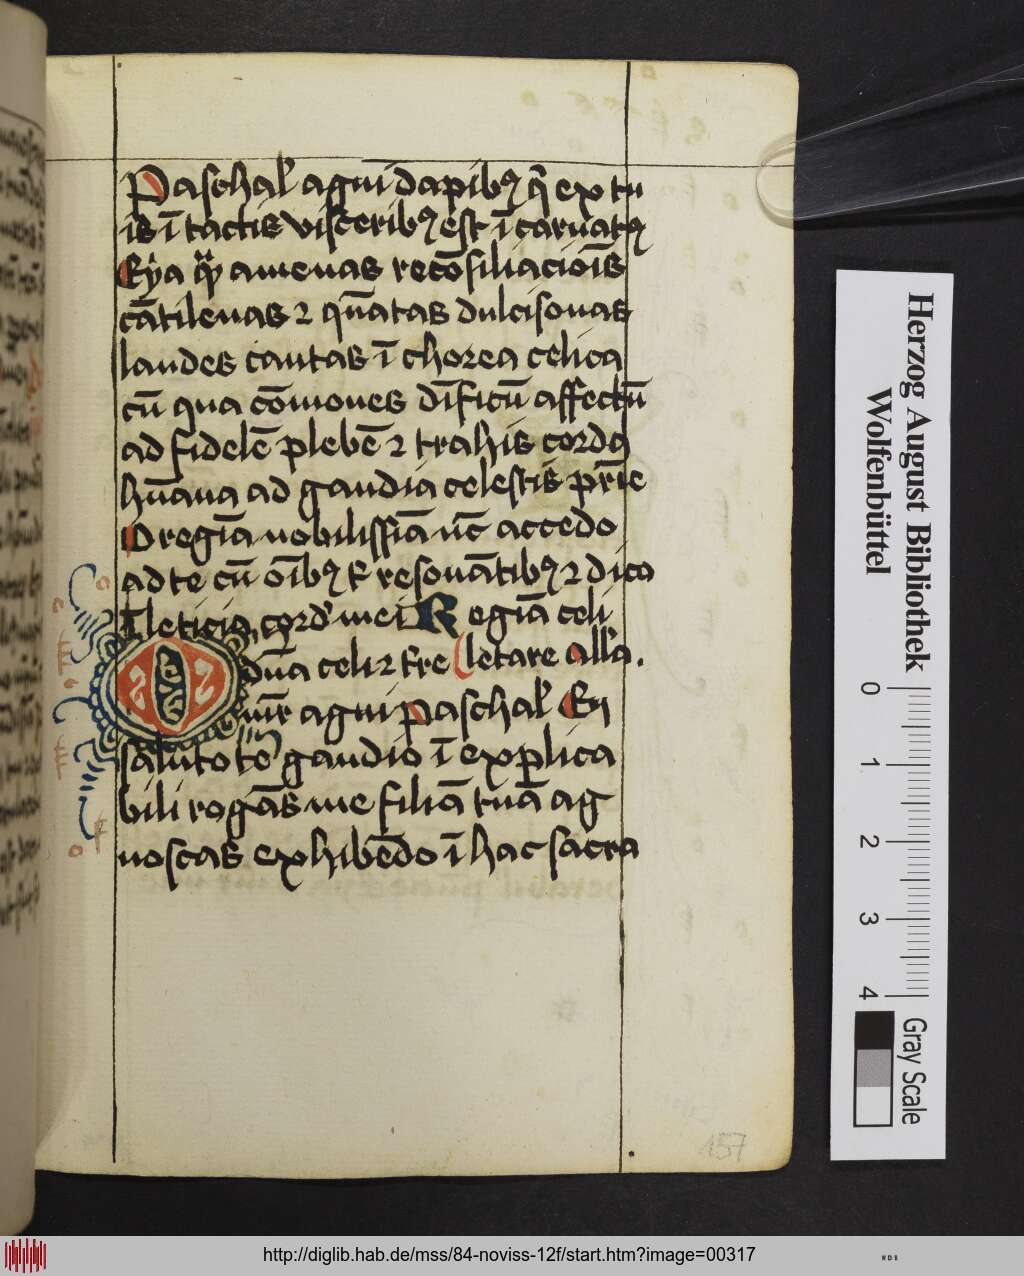 Paschal' agni dapibꝫ q̄ ex tu
is ī tactis visceribꝫ est ī carnatꝫ
Eya amenas recōsiliaciois
cātilenas ⁊ qn̄atas dulcisonas
laudes cantas ī chorea celica
cū qua cōmoues affectū
ad fidelē plebē ⁊ trahis corda
hūana ad gaudia celestis prīe
O regīa nobilissīa nc̄ accedo
ad te cū oībꝫ resonātibꝫ ⁊ dico
ī leticia cord' mei Regīa celi
O dūa celi ⁊ tre letare all'a.
agni paschal' En
saluto te gaudio ī explica
bili rogās me filiā tuā ag
noscas exhibēdo ī hac sacra
157
Herzog August Bibliothek
Wolfenbüttel
0 1 2 3 4
Gray Scale
http://diglib.hab.de/mss/84-noviss-12f/start.htm?image=00317